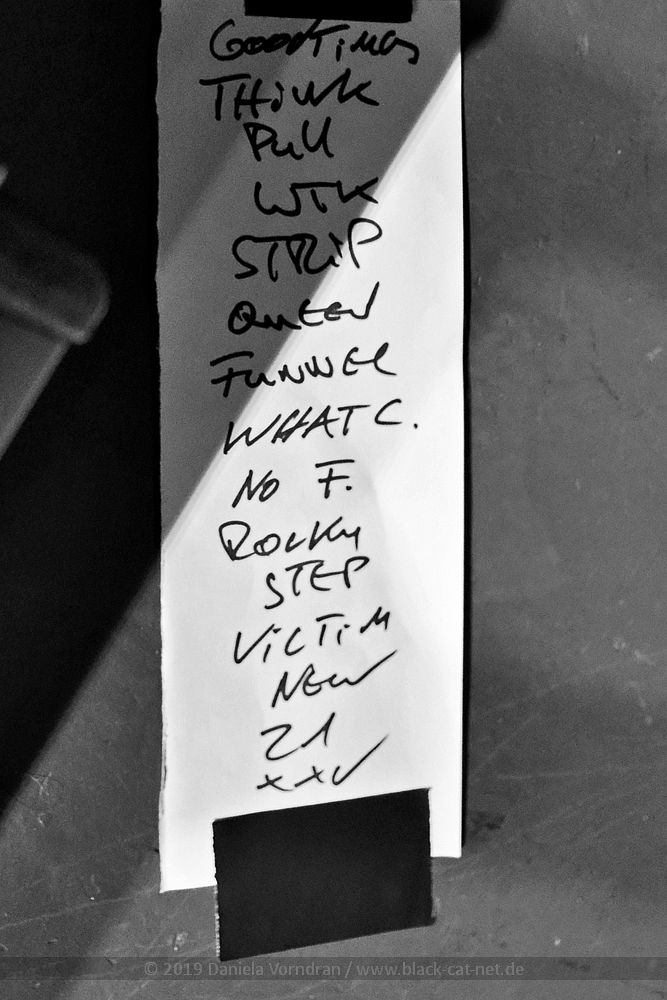 GoodTimes
THiNK
Pull
WTK
STRiP
QUEEN
FUNNEL
WHAT C.
No F.
ROCKY
STEP
ViCTiM
NEW
21
XXV
© 2019 Daniela Vorndran / www.black-cat-net.de